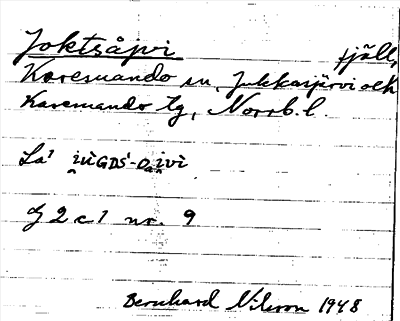 Joktsåjvi fjäll,
Karesuando sn, Jukkasjärvi och
Karesuando tg, Norrb. l.
La'
J 2 c 1 nr. 9
Bernhard Nilsson 1948